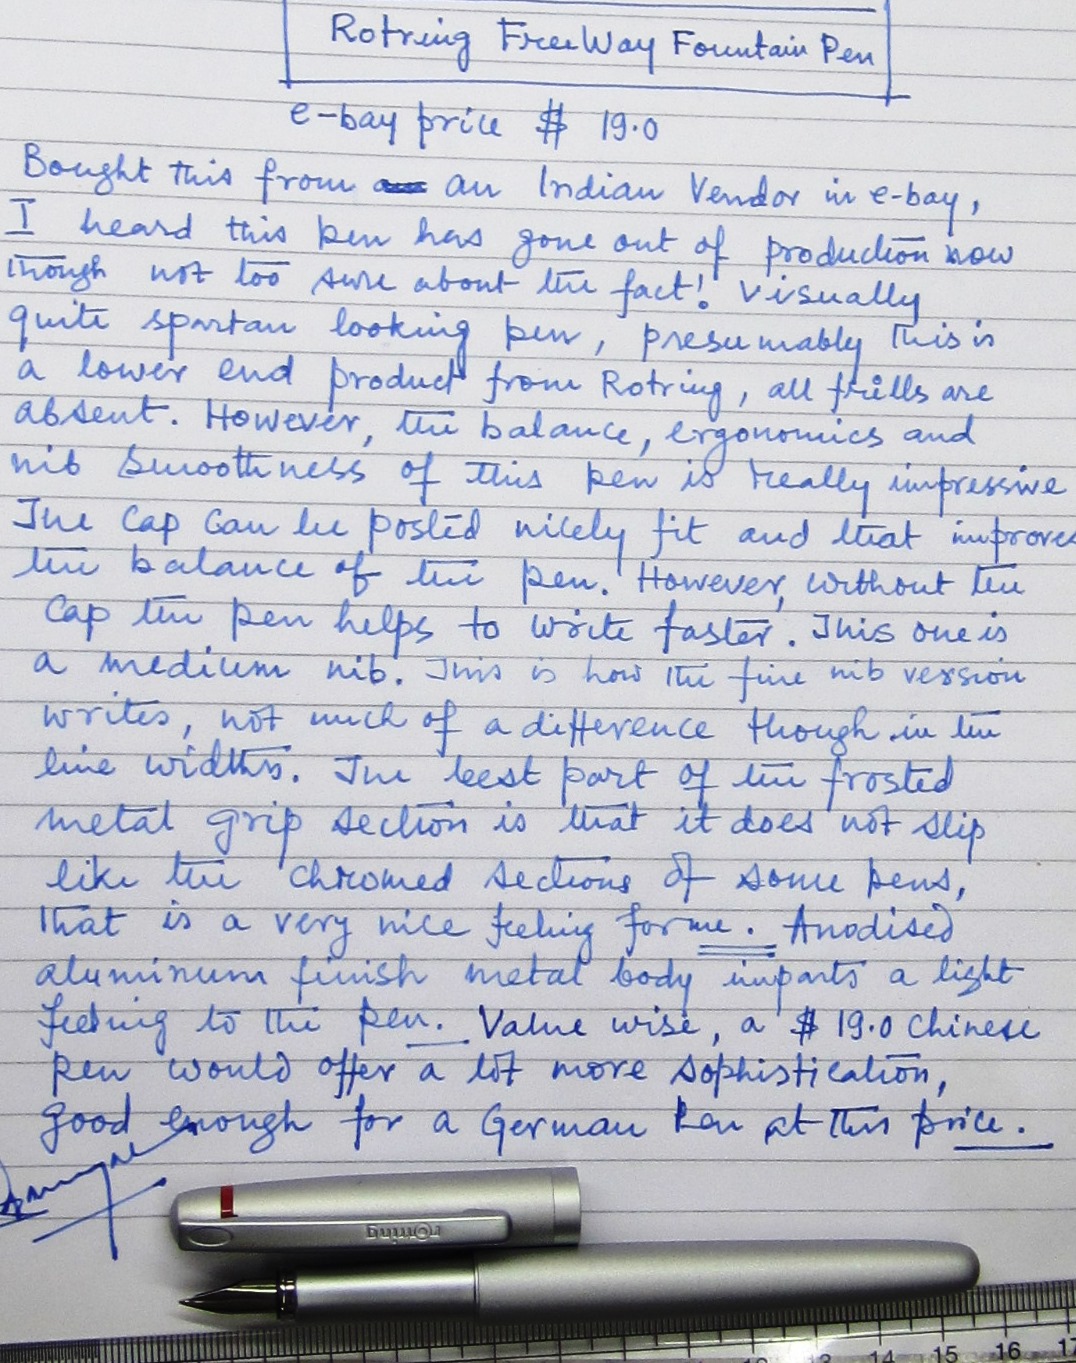 Rotring FreeWay Fountain Pen
e-bay price $ 19.0
Bought this from an Indian Vendor in e-bay,
I heard this pen has gone out of production now
though not too sure about the fact! Visually
quite spartan looking pen, presumably this is
a lower end product from Rotring, all frills are
absent. However, the balance, ergonomics and
nib smoothness of this pen is really impressive
The Cap Can be posted nicely fit and that improves
the balance of the pen. However, without the
Cap the pen helps to write faster. This one is
a medium nib. This is how the fine nib version
writes, not much of a difference though in the
line widths. The best part of the frosted
metal grip section is that it does not slip
like the chromed sections of some pens,
that is a very nice feeling for me. Anodised
aluminum finish metal body imparts a light
feeling to the pen. Value wise, a $ 19.0 Chinese
pen would offer a lot more sophistication,
good enough for a German Pen at this price.
rotring
12 13 14 15 16 17